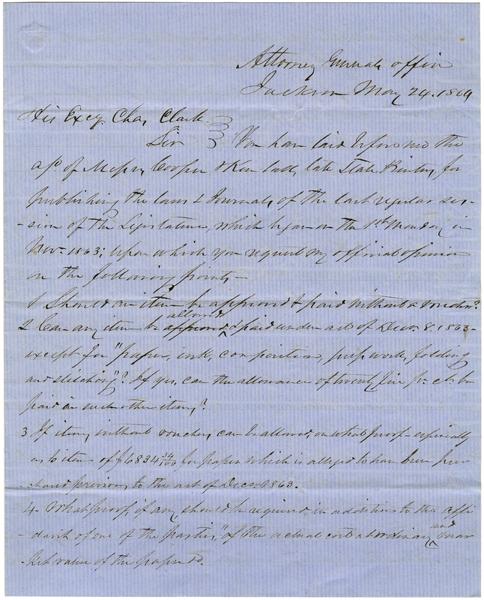 Attorney Generals office
Jackson May 24. 1864
His Excy. Chas. Clark
Sir You have laid before me the
a/c of Messrs Cooper & Kimball, late State Printers, for
publishing the laws & Journals, of the last regular ses-
-sion of the Legislature, which began on the 1st Monday in
Nov. 1863; upon which you request my official opinion
on the following points,—
1 Should an item be approved & paid without a voucher?
2 Can any item be approved allowed & paid under act of Decr. 8. 1863-
except for "paper, ink, composition, press work, folding
and stitching"? If yes, can the allowance of twenty five pr. ct. be
paid on such other items?
3 If items, without voucher, can be allowed, on what proof especially
as to item of $4834 for paper which is alleged to have been pur-
chased previous to the act of Decr 1863.
4. What proof, if any, should be required in addition to the affi-
-davit of one of the parties, "of the actual cost at ordinary and mar-
ket value of the paper &c.